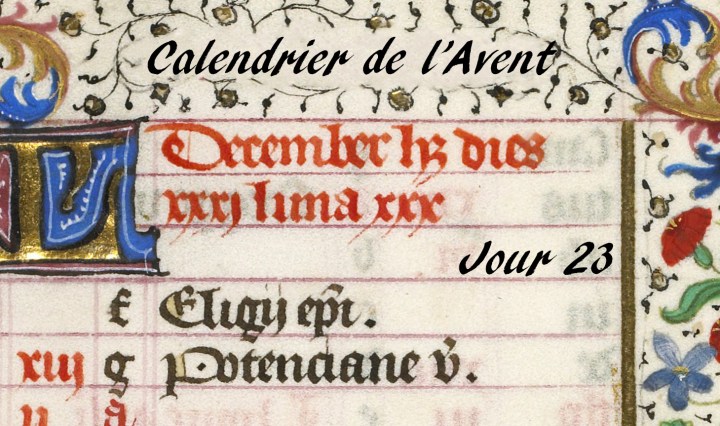 Calendrier de l'Avent
KL
December hꝫ dies
xxxj luna xxx
Jour 23
f Eligij epi.
xiij g Potenciane v̄.
ij a